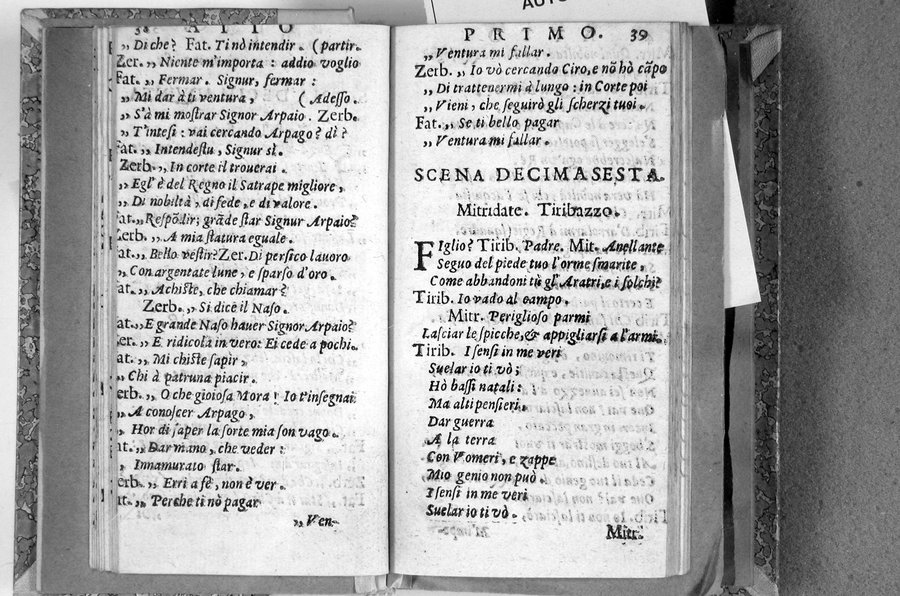 AUTO
38 ATTO
„ Di che? Fat. Ti nõ intendir. (partir.
Zer. „ Niente m'importa : addio voglio
Fat. „ Fermar. Signur, fermar :
„ Mi dar à ti ventura, ( Adesso.
„ S'à mi mostrar Signor Arpaio. Zerb.
„ T'intesi : vai cercando Arpago? dì ?
Fat. „ Intendestu, Signur sì.
Zerb. „ In corte il trouerai.
„ Egl'è del Regno il Satrape migliore,
„ Di nobiltà, di fede, e di valore.
Fat. „ Respõdir; grãde star Signur Arpaio?
Zerb. „ A mia statura eguale.
Fat. „ Bello vestir? Zer. Di persico lauoro
„ Con argentate lune, e sparso d'oro.
Fat. „ Achiste, che chiamar?
Zerb. „ Si dice il Naso.
Fat. „ E grande Naso hauer Signor Arpaio?
Zer. „ E ridicola in vero: Ei cede a pochi.
Fat. „ Mi chiste sapir,
„ Chi à patruna piacir.
Zerb. „ O che gioiosa Mora! Io t'insegnai
„ A conoscer Arpago,
„ Hor di saper la sorte mia son vago.
Fat. „ Dar mano, che veder :
„ Innamurato star.
Zerb. „ Erri a fè, non è ver.
Fat. „ Perche ti nò pagar
„ Ven-
PRIMO. 39
„ Ventura mi fallar.
Zerb. „ Io vò cercando Ciro, e nõ hò cãpo
„ Di trattenermi à lungo : in Corte poi
„ Vieni, che seguirò gli scherzi tuoi.
Fat. „ Se ti bello pagar
„ Ventura mi fallar.
SCENA DECIMASESTA.
Mitridate. Tiribazzo.
FIglio? Tirib. Padre. Mit. Anellante
Seguo del piede tuo l'orme smarite,
Come abbandoni tù gl'Aratri, e i solchi?
Tirib. Io vado al campo.
Mitr. Periglioso parmi
Lasciar le spicche, & appigliarsi a l'armi.
Tirib. I sensi in me veri
Suelar io ti vò;
Hò bassi natali :
Ma alti pensieri,
Dar guerra
A la terra
Con Vomeri, e zappe
Mio genio non può.
I sensi in me veri
Suelar io ti vò.
Mitr.